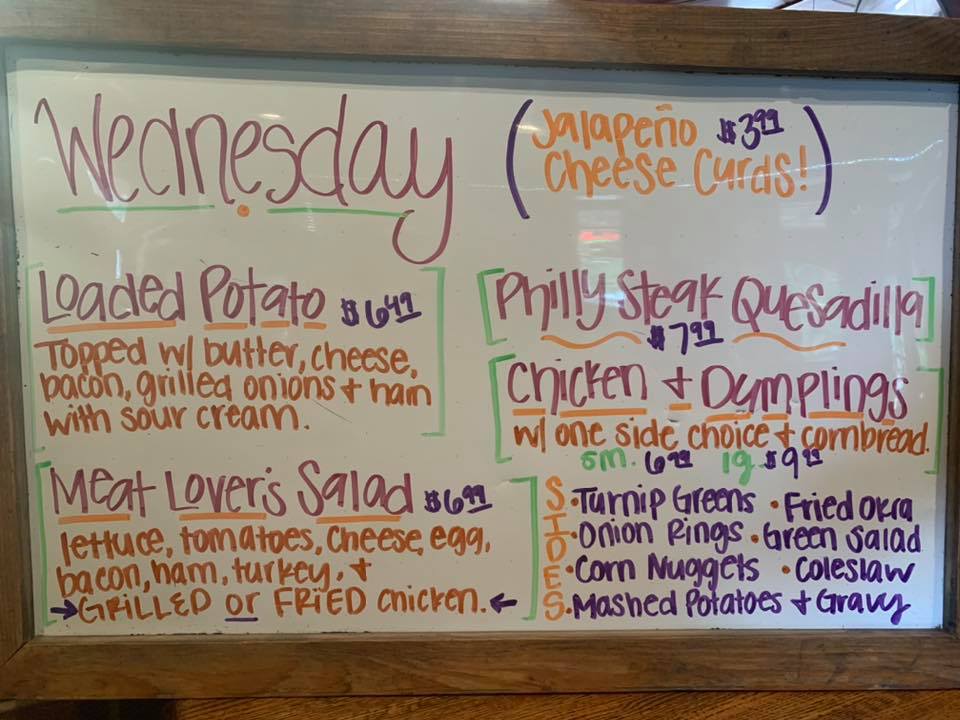 Wednesday
(Jalapeño $3.99
Cheese Curds!)
[Loaded Potato $6.49
Topped w/ butter, cheese,
bacon, grilled onions + ham
with sour cream.]
[Meat Lover's Salad $6.99
lettuce, tomatoes, cheese, egg,
bacon, ham, turkey, +
→GRILLED or FRIED chicken.←]
[Philly Steak Quesadilla]
$7.99
[Chicken + Dumplings
w/ one side choice + cornbread.
sm. 6.99 lg $9.99]
SIDES
•Turnip Greens •Fried Okra
•Onion Rings •Green Salad
•Corn Nuggets •Coleslaw
•Mashed Potatoes + Gravy